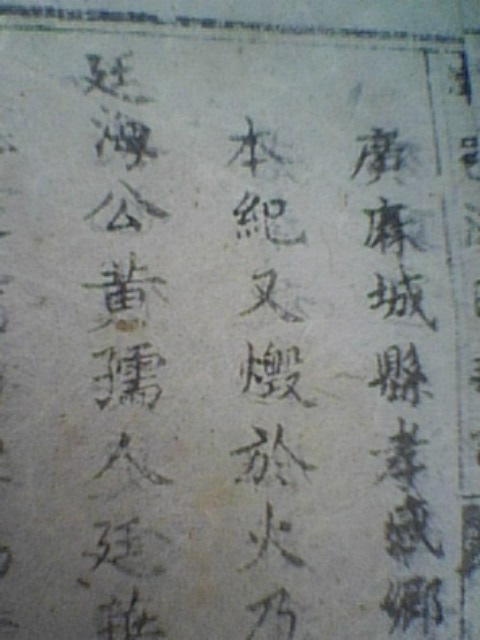 廣麻城縣孝感鄉
本紀又燬於火乃
廷海公黃孺人廷